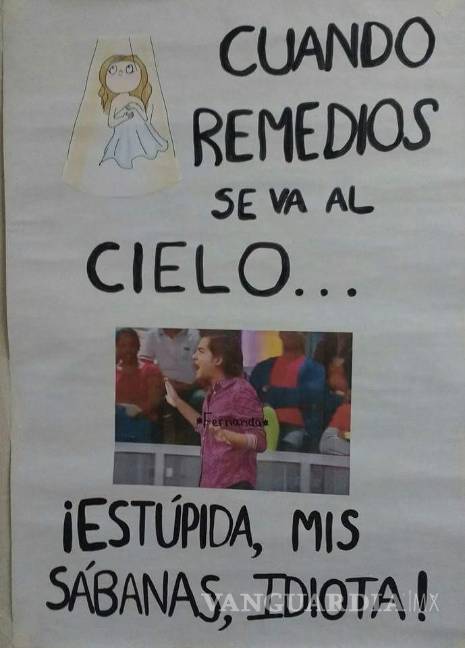 CUANDO
REMEDIOS
SE VA AL
CIELO...
*Fernanda*
¡ESTÚPIDA, MIS
SÁBANAS, IDIOTA!
VANGUARDIA|MX